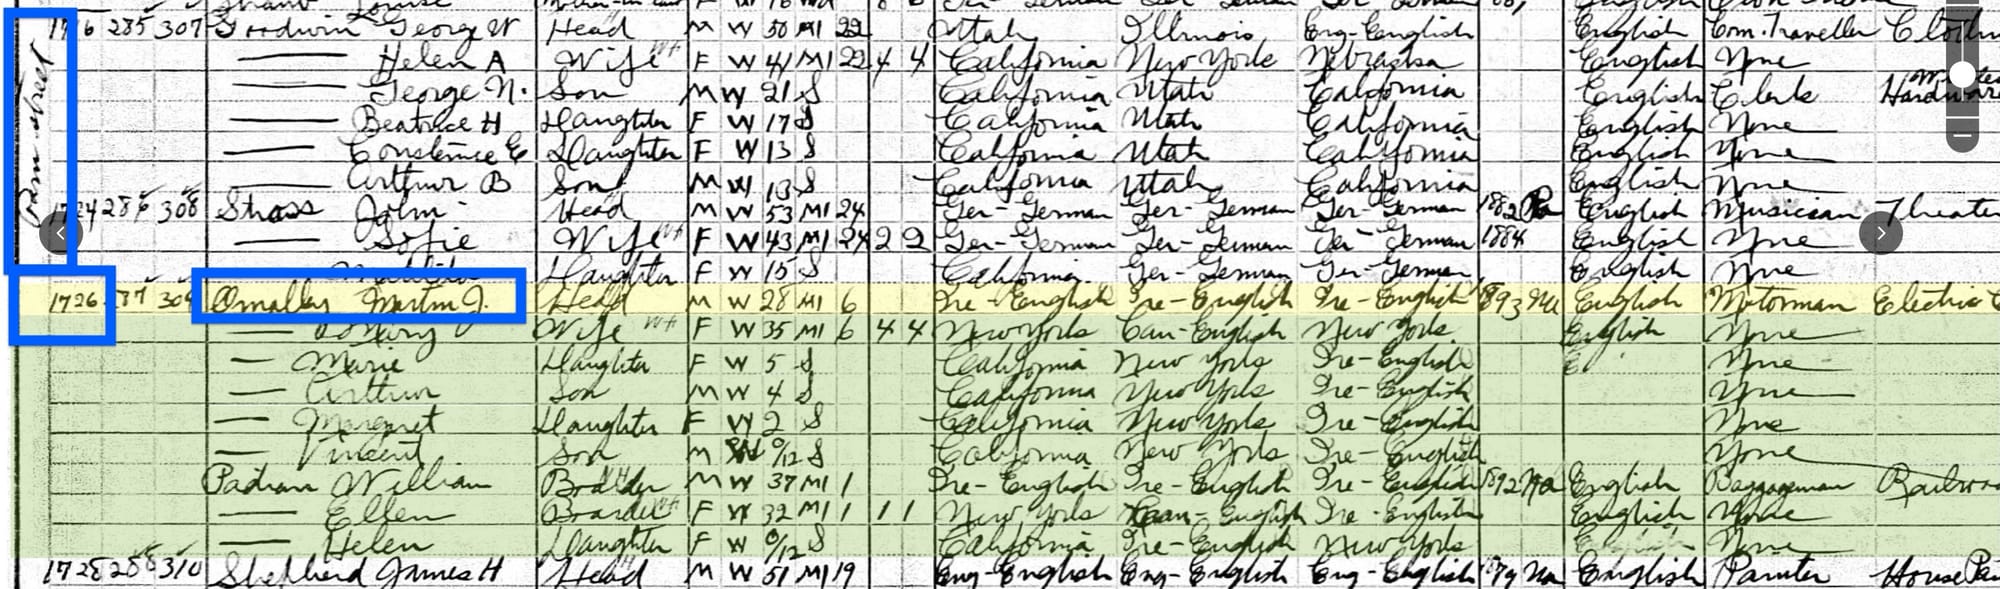 1716 285 307 Goodwin George W Head M W 50 M1 22 Utah Illinois Eng-English English Com. Traveller
Helen A Wife F W 41 M1 22 4 4 California New York Nebraska English None
George N. Son M W 21 S California Utah California English Clerk Hardware
Beatrice H Daughter F W 17 S California Utah California English None
Constence E Daughter F W 13 S California Utah California English None
Arthur B Son M W 13 S California Utah California English None
1724 286 308 Strass John Head M W 53 M1 24 Ger-German Ger-German Ger-German 1882 Pa English Musician Theater
Sofie Wife F W 43 M1 24 2 2 Ger-German Ger-German Ger-German 1884 English None
Daughter F W 15 S California Ger-German Ger-German English None
1726 287 309 Omalley Martin J. Head M W 28 M1 6 Ire-English Ire-English Ire-English 1893 Na English Motorman Electric
Mary Wife F W 35 M1 6 4 4 New York Can-English New York English None
Marie Daughter F W 5 S California New York Ire-English None
Arthur Son M W 4 S California New York Ire-English None
Margaret Daughter F W 2 S California New York Ire-English None
Vincent Son M W 0/12 S California New York Ire-English None
Padian William Boarder M W 37 M1 1 Ire-English Ire-English Ire-English 1892 Na English Baggageman
Ellen Boarder F W 32 M1 1 1 1 New York Can-English Ire-English English None
Helen Daughter F W 0/12 S California Ire-English New York None
1728 288 310 Shepherd James H Head M W 51 M1 19 Eng-English Eng-English Eng-English 1879 Na English Painter House